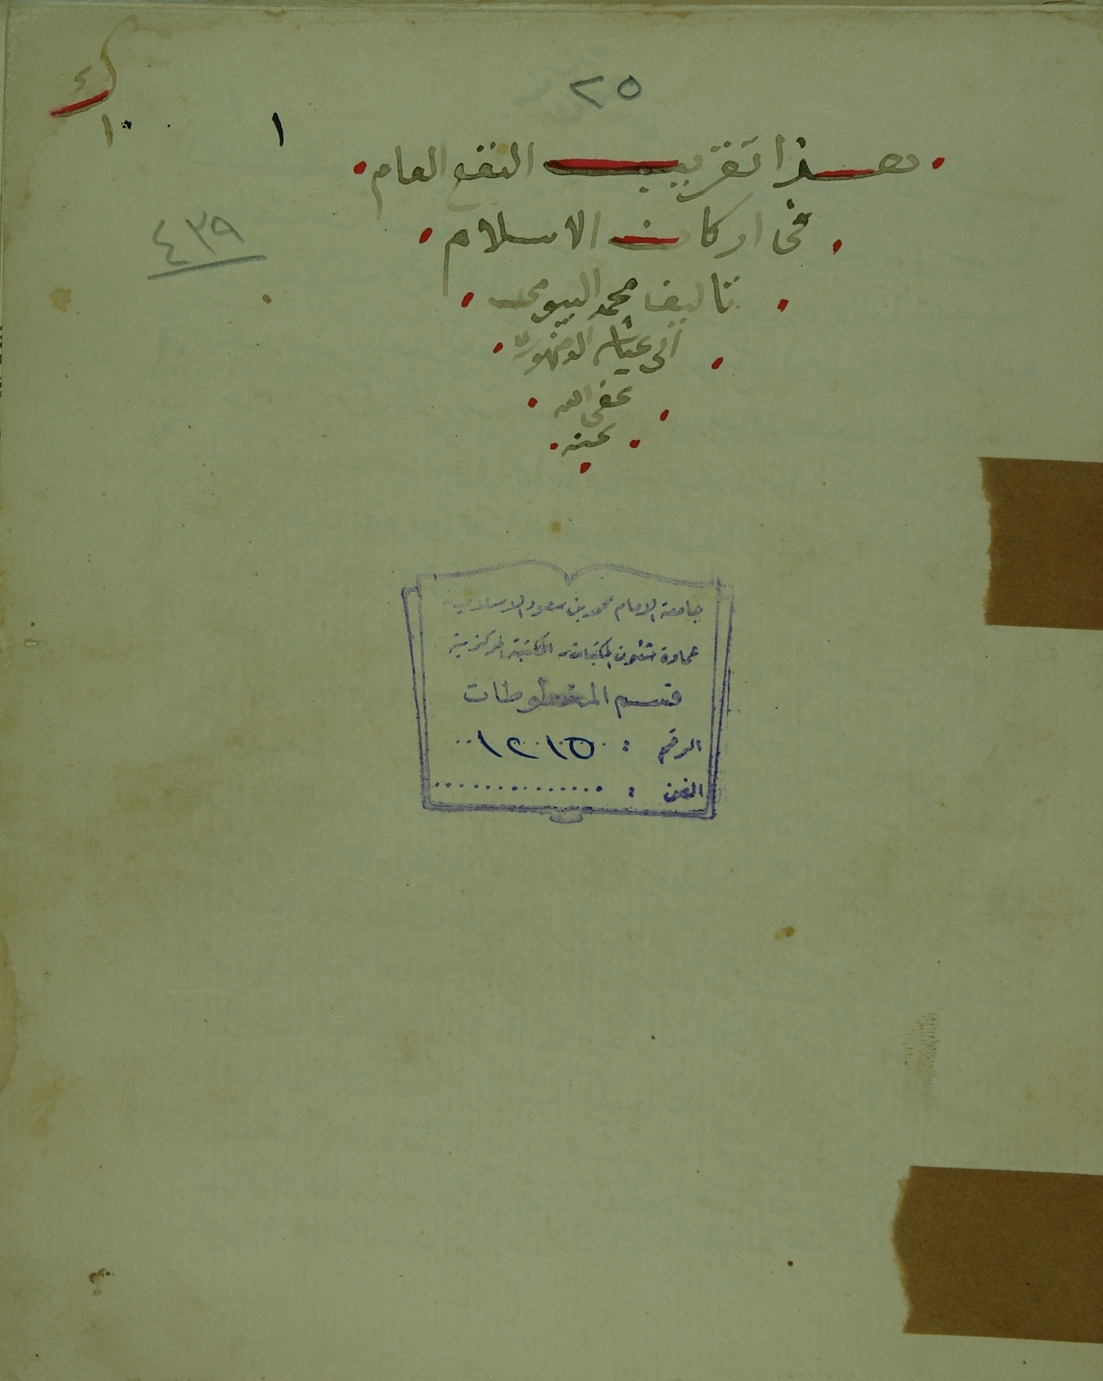 ٢٥
١
هذا تقريب النفع العام
فى اركان الاسلام
٤٣٩
تاليف محمد البيومى
ابى عياشه الدمنهورى
عفى الله
عنه
جامعة الامام محمد بن سعود الاسلامية
عمادة شئون المكتبات - المكتبة المركزية
قسم المخطوطات
الرقم : ١٢١٥
الفن :